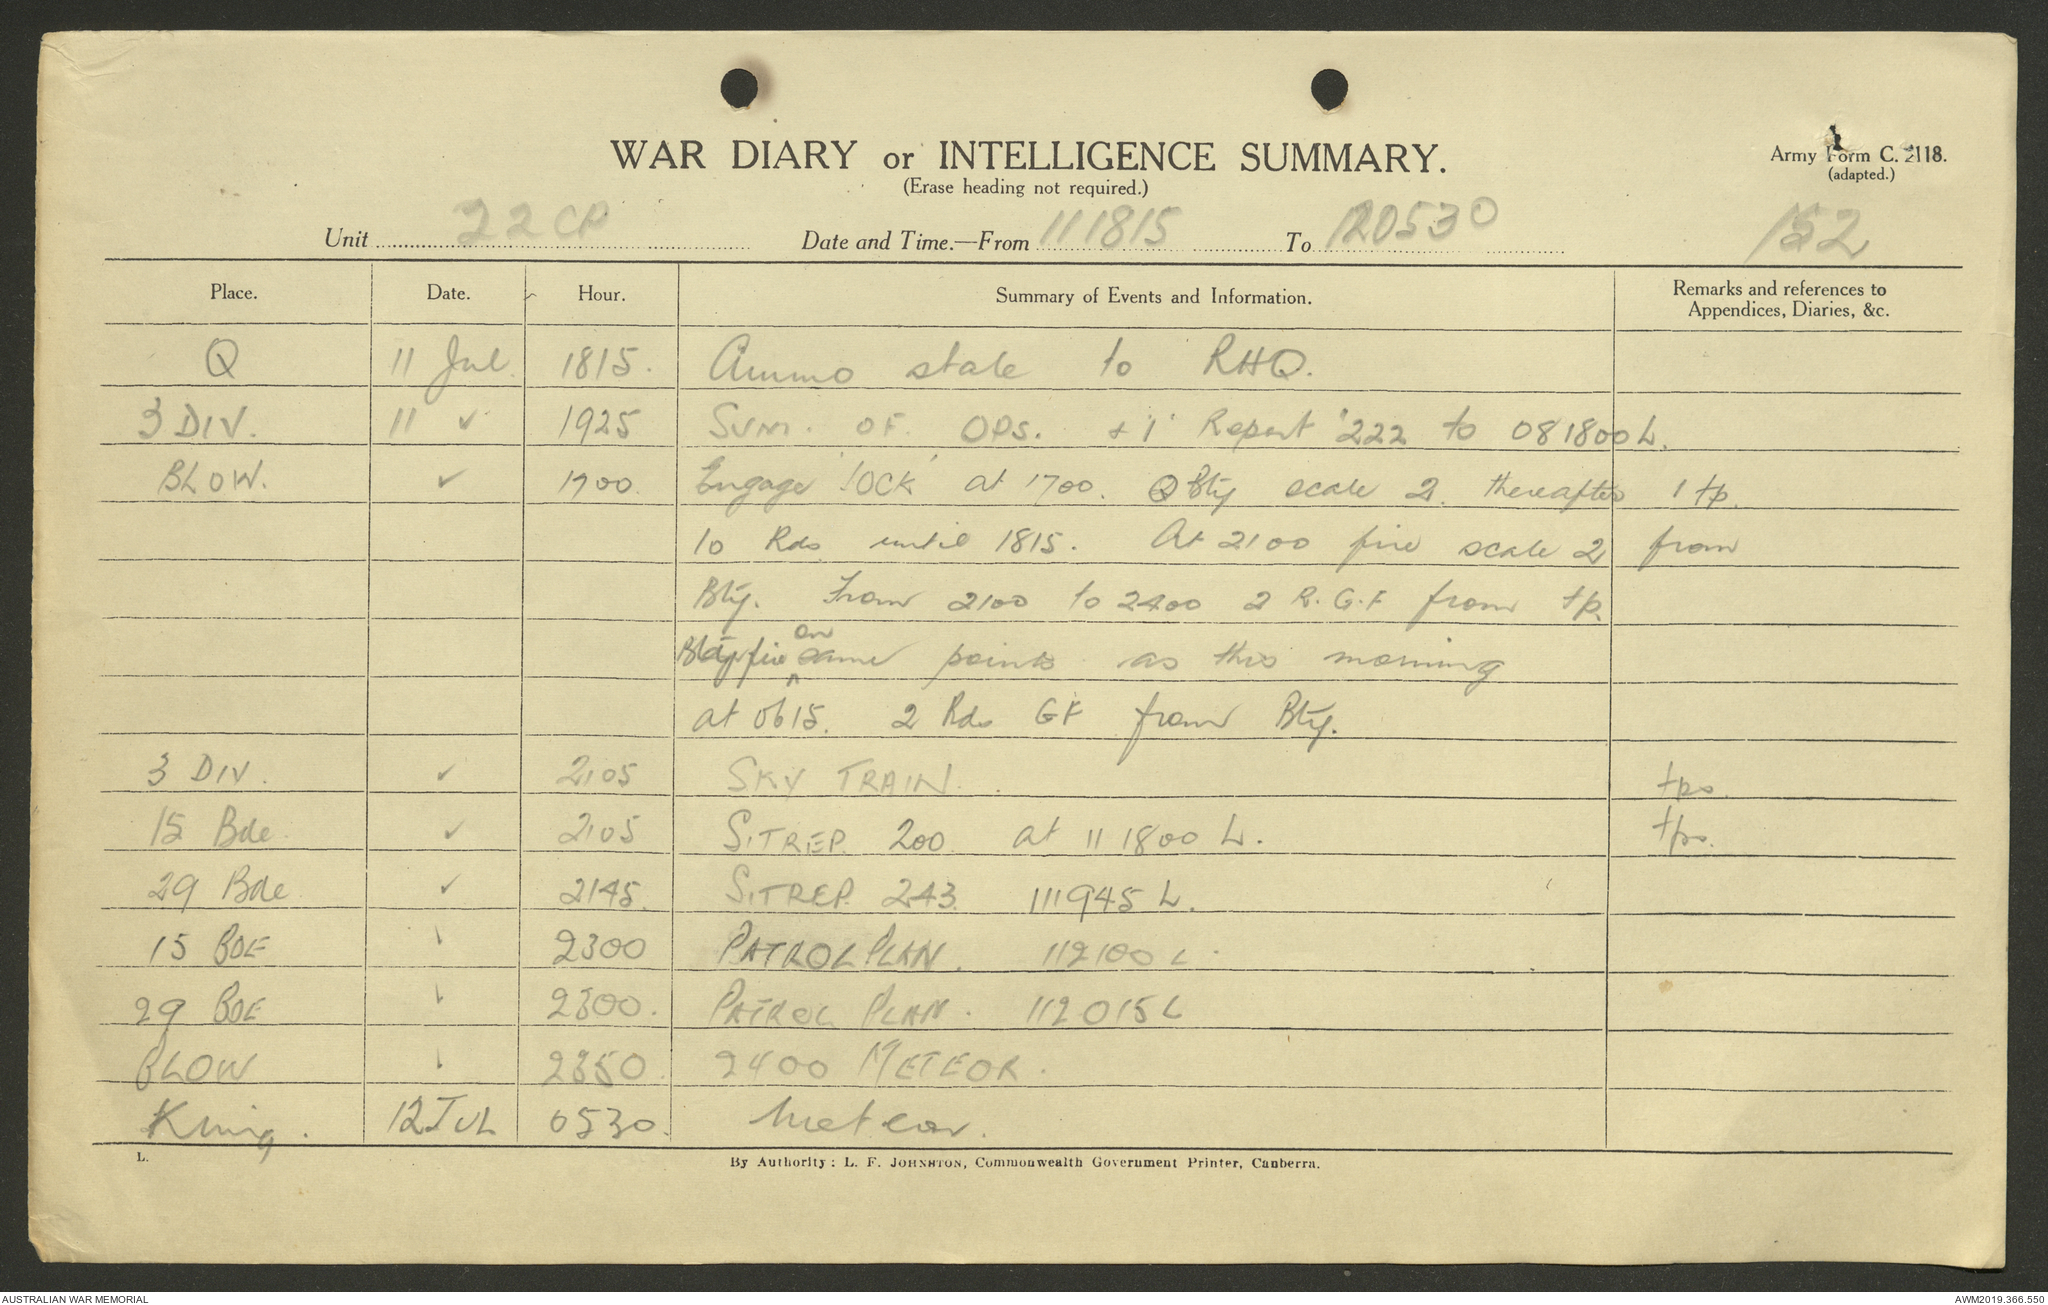 WAR DIARY or INTELLIGENCE SUMMARY.
(Erase heading not required.)
Army Form C. 2118.
(adapted.)
Unit 22 CP Date and Time.—From 111815 To 120530 152
Place. Date. Hour. Summary of Events and Information. Remarks and references to Appendices, Diaries, &c.
Q 11 Jul. 1815. Ammo state to RHQ.
3 DIV. 11 ✓ 1925 SUM. OF OPS. & 'I' Report 222 to 081800 L.
BLOW. ✓ 1700 Engage 'JOCK' at 1700. Q Bty scale 2. thereafter 1 tp.
10 Rds until 1815. At 2100 fire scale 2 from
Bty. From 2100 to 2400 2 R.G.F from tp
Bty fire on same points as this morning
at 0615. 2 Rds GF from Bty.
3 DIV. ✓ 2105 SKY TRAIN. tps.
15 Bde ✓ 2105 SITREP. 200 at 11 1800 L. tps.
29 Bde ✓ 2145. SITREP. 243. 111945 L.
15 BDE ✓ 2300 PATROL PLAN. 112100 L.
29 BDE ✓ 2300. PATROL PLAN. 112015 L
BLOW ✓ 2350 2400 METEOR.
King. 12 JUL 0530 Meteor.
L.
By Authority: L. F. JOHNSTON, Commonwealth Government Printer, Canberra.
AUSTRALIAN WAR MEMORIAL
AWM2019.366.550